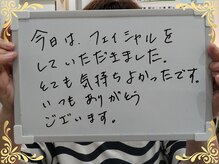 今日は、フェイシャルを
していただきました。
とても気持ちよかったです。
いつもありがとう
ございます。